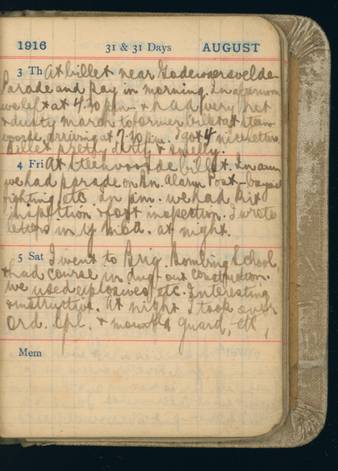 1916 31 & 31 Days AUGUST
3 Th At billet near Godewaersvelde
Parade and pay in morning. In afternoon
we left at 4.30 p.m. & had very hot
& dusty march to former billet at Steen-
voorde, arriving at 7.30 p.m. I got 4 nice letters
Billet pretty dirty & smelly.
4 Fri At Steenvoorde billet. In a.m.
we had parade on Bn. Alarm Post - bayonet
fighting etc. In p.m. we had kit
inspection & foot inspection. I wrote
letters in Y.M.C.A. at night.
5 Sat I went to Brig. Bombing School
& had course in dug-out construction.
We used explosives etc. Interesting
& instructive. At night I took over
Ord. Cpl. & mounted guard, etc.
Mem